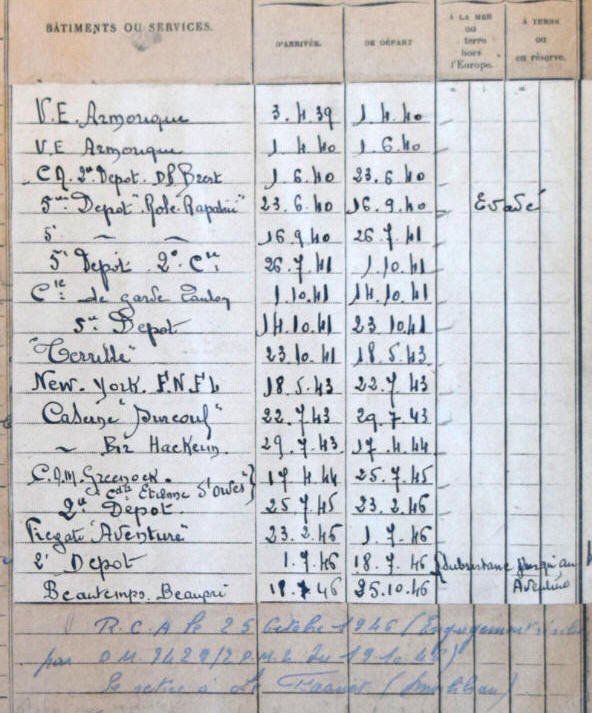 BÂTIMENTS OU SERVICES. D'ARRIVÉE. DE DÉPART À LA MER ou terre hors l'Europe. À TERRE ou en réserve.
V.E. Armorique 3.4.39 1.4.40
V.E Armorique 1.4.40 1.6.40
2e Depot Brest 1.6.40 23.6.40
5me Depot "Role-Rapatrié" 23.6.40 16.9.40 Evadé
5e 16.9.40 26.7.41
5e Depot 2e Cie 26.7.41 1.10.41
Cie de garde Toulon 1.10.41 14.10.41
5e Depot 14.10.41 23.10.41
"Terrible" 23.10.41 18.5.43
New-York F.N.F.L 18.5.43 22.7.43
Caserne "Surcouf" 22.7.43 29.7.43
~ Bir Hackeim. 29.7.43 17.4.44
C.A.M. Greenock. 17.4.44 25.7.45
Etienne d'Orves"
2e Depot. 25.7.45 23.2.46
Fregate "Aventure" 23.2.46 1.7.46
2e Depot 1.7.46 18.7.46 Subsistance jusqu'au
Beautemps. Beaupré 18.7.46 25.10.46
R.C.A le 25 Octobre 1946 (Engagement
par
Se retire à